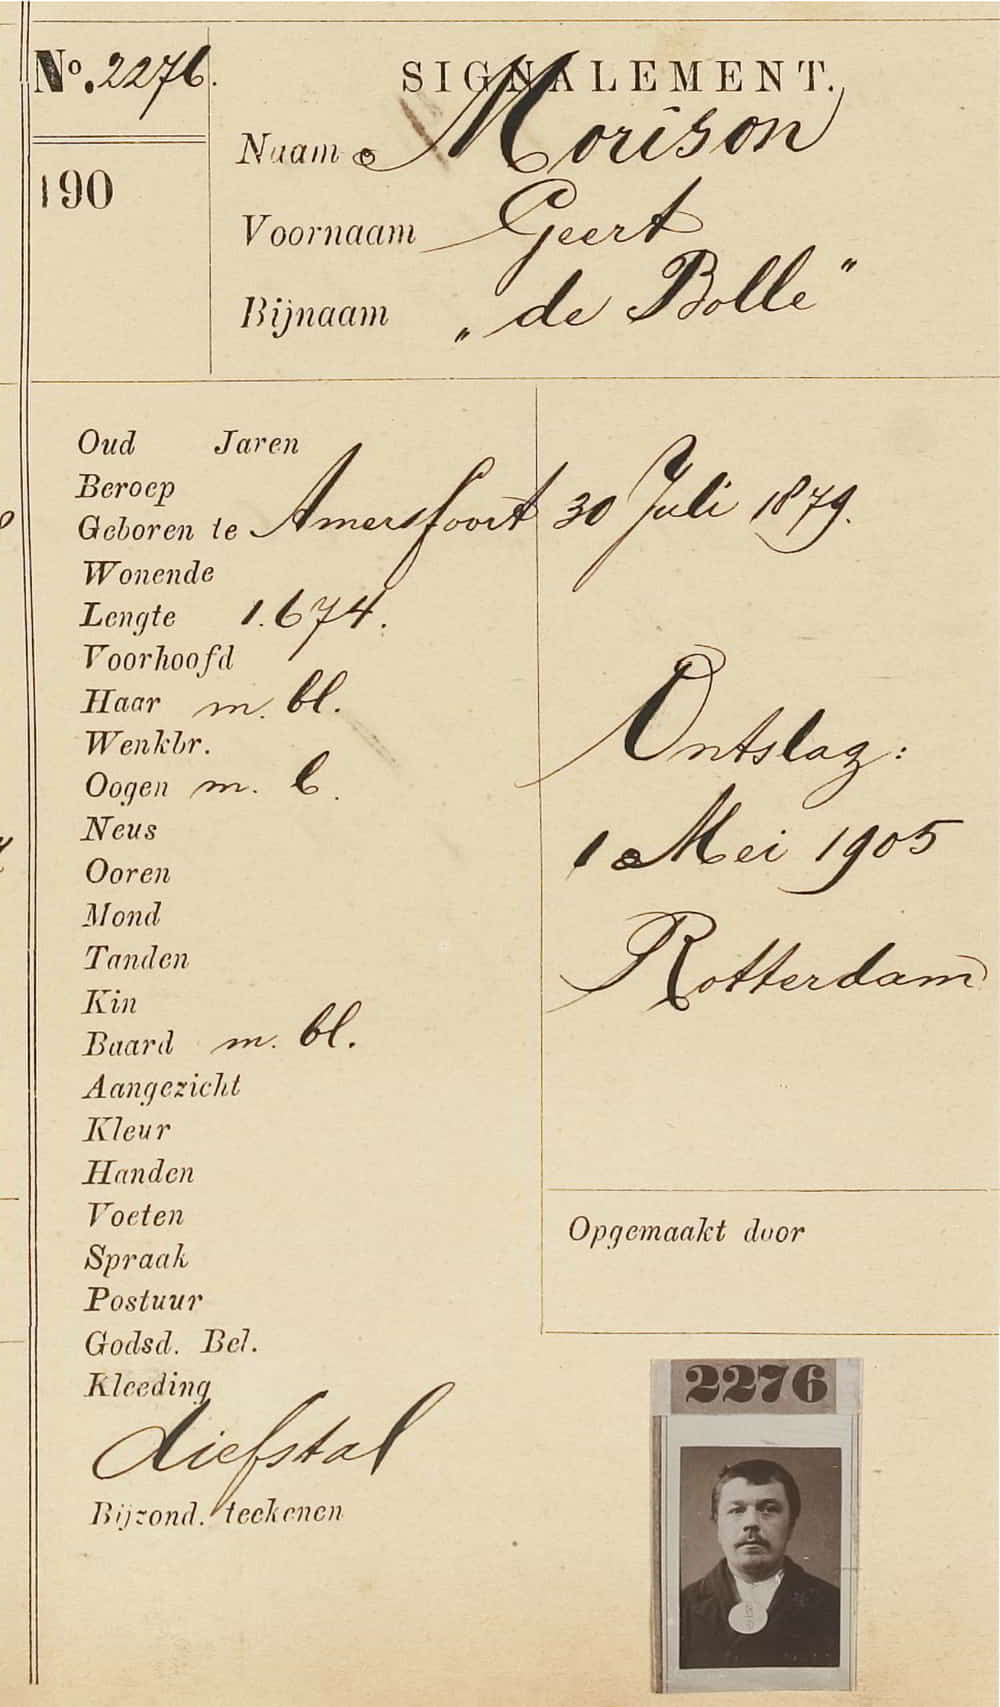 No. 2276.
SIGNALEMENT.
190
Naam Morison
Voornaam Geert
Bijnaam „de Bolle"
Oud Jaren
Beroep
Geboren te Amersfoort 30 Juli 1879.
Wonende
Lengte 1.674.
Voorhoofd
Haar m. bl.
Wenkbr.
Ontslag:
Oogen m. b.
Neus
1 Mei 1905
Ooren
Mond
Tanden
Rotterdam
Kin
Baard m. bl.
Aangezicht
Kleur
Handen
Voeten
Opgemaakt door
Spraak
Postuur
Godsd. Bel.
Kleeding
2276
diefstal
Bijzond. teekenen